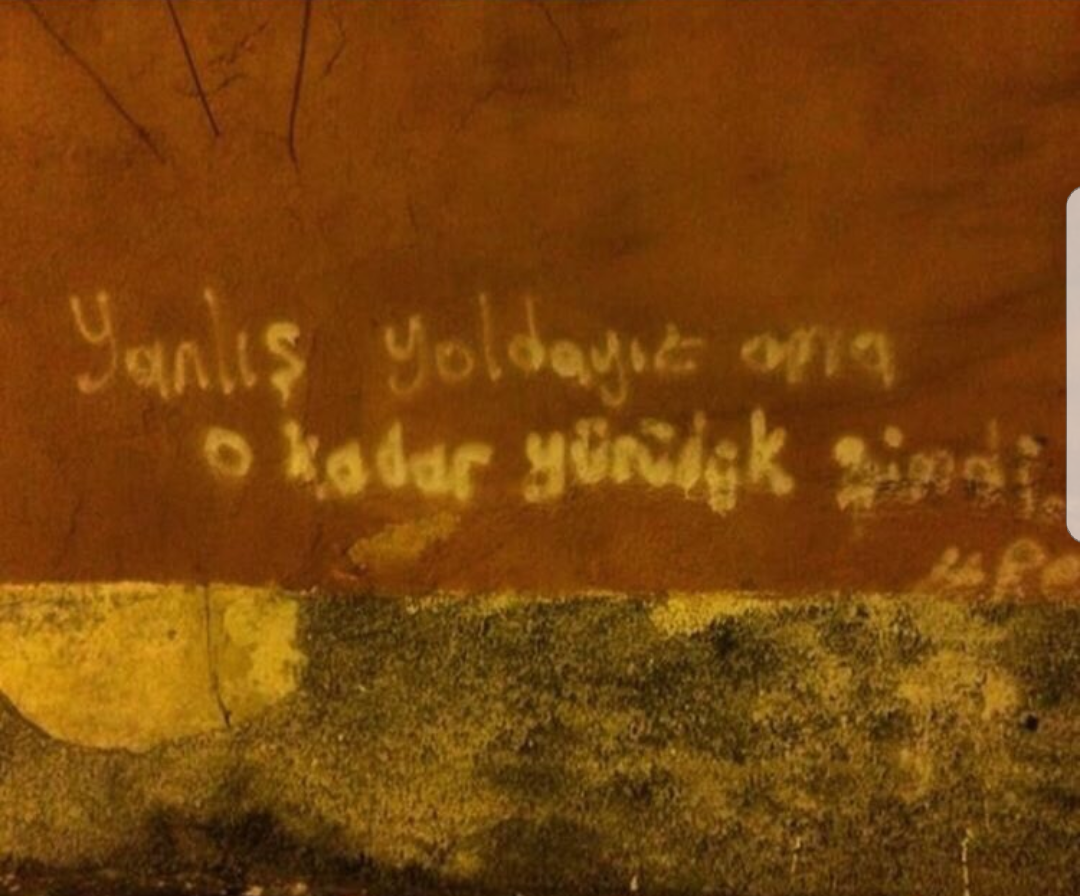 Yanlış yoldayız ama
o kadar yürüdük şimdi